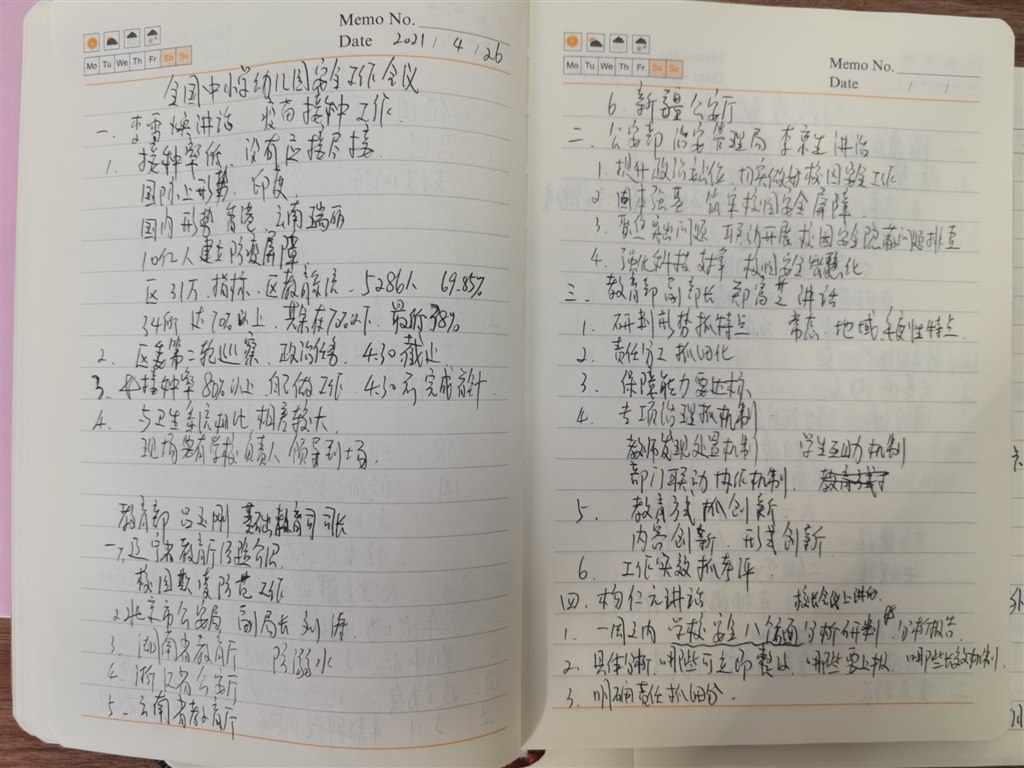 Memo No.
Date 2021 / 4 / 26
Mo Tu We Th Fr Sa Su
全国中小学幼儿园安全工作会议
一. 李雪焕讲话 疫苗接种工作.
1. 接种率低, 没有应接尽接.
国际上形势, 印度.
国内形势 香港 云南瑞丽
10亿人建立防疫屏障.
区31万指标, 区教育系统, 5286人 69.85%
34所 达70%以上, 其余在70%以下 最低38%
2. 区委第二轮巡察, 政治任务, 4.30截止
3. 接种率80%以上, 自己做工作, 4.30前完成首针.
4. 与卫生系统相比 相差较大
现场要有学校负责人 领导到场.
教育部 吕玉刚 基础教育司司长
一, 辽宁省教育厅经验介绍.
校园欺凌防范工作
2. 北京市公安局 副局长 刘涛.
3. 湖南省教育厅 防溺水
4. 浙江省公安厅
5. 云南省教育厅
Memo No.
Date / /
Mo Tu We Th Fr Sa Su
6. 新疆公安厅
二. 公安部 治安管理局 李京生讲话
1. 提升政治站位, 切实做好校园安全工作
2. 固本强基 筑牢校园安全屏障.
3. 聚焦突出问题 联动开展校园安全隐蔽问题排查
4. 强化科技支撑 校园安全智慧化
三. 教育部副部长 郑富芝 讲话
1. 研判形势抓特点. 常态, 地域, 季度性特点.
2. 责任分工 抓细化
3. 保障能力要达标.
4. 专项治理抓机制
教师发现处置机制 学生互助机制
部门联动协作机制
5. 教育方式 抓创新.
内容创新. 形式创新
6. 工作实效 抓考评.
四. 杨仁元讲话 校长会议上讲的.
1. 一周之内 学校安全八个方面分析研判, 分析报告.
2. 具体分析 哪些可立即整改 哪些要上报 哪些长效机制.
3. 明确责任抓细分.